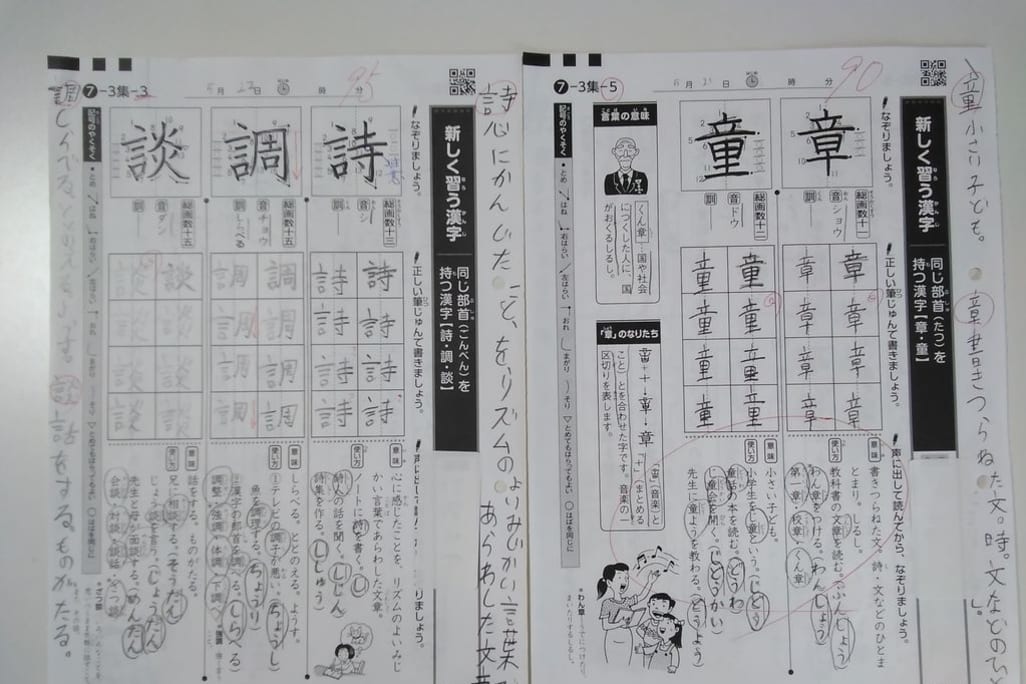 童 小さい子ども。
章 書きつらねた文。時。文などのひと
し。
新しく習う漢字
同じ部首(たつ)を
持つ漢字【章・童】
なぞりましょう。
正しい筆じゅんで書きましょう。
声に出して読んでから、なぞりましょう。
章
総画数十一
音 ショウ
訓
章 章
章 章
章 章
章 章
意味
書きつらねた文。詩・文などのひとま
とまり。しるし。
使い方
教科書の文章を読む。(ぶんしょう)
わん章をつける。(わんしょう)
第一章・校章・くん章
童
総画数十二
音 ドウ
訓
童 童
童 童
童 童
童 童
意味
小さい子ども。
使い方
小学生をじ童という。(じどう)
童話の本を読む。(どうわ)
じ童会を開く。(じどうかい)
先生に童ようを教わる。(どうよう)
蒼葉の意味
くん章…国や社会
につくした人に、国
がおくるしるし。
「章」のなりたち
「音」(音楽)と
「十」(まとめる
こと)とを合わせた字です。音楽の一
区切りを表します。
*わん章
記号のやくそく
・とめ はね 右はらい 左はらい おれ まがり そり とめてもはらってもよい はばを同じに
⑦-3集-5
6月21日 時 分
90
詩 心にかんじたことを、リズムのよいみじかい言葉で
あらわした文章
新しく習う漢字
同じ部首(ごんべん)を
持つ漢字【詩・調・談】
なぞりましょう。
正しい筆じゅんで書きましょう。
詩
総画数十三
音 シ
訓
詩 詩
詩 詩
詩 詩
詩 詩
意味
心に感じたことを、リズムのよいみじ
かい言葉であらわした文章。
使い方
ノートに詩を書く。(し)
詩人の話を聞く。(しじん)
詩集を作る。(ししゅう)
調
総画数十五
音 チョウ
訓 しらべる
調 調
調 調
調 調
調 調
意味
しらべる。ととのえる。ようす。
使い方
①テレビの調子が悪い。(ちょうし)
魚を調理する。(ちょうり)
②漢字の部首を調べる。(しらべる)
談
総画数十五
音 ダン
訓
談 談
談 談
談 談
談 談
意味
話をする。ものがたる。
使い方
兄に相談する。(そうだん)
じょう談を言う。(じょうだん)
先生と母が面談する。(めんだん)
会談・対談・談話
記号のやくそく
・とめ はね 右はらい 左はらい おれ まがり そり とめてもはらってもよい はばを同じに
⑦-3集-3
5月23日 時 分
95
調 しらべる。ととのえる。ようす。 談 話をする。ものがたる。